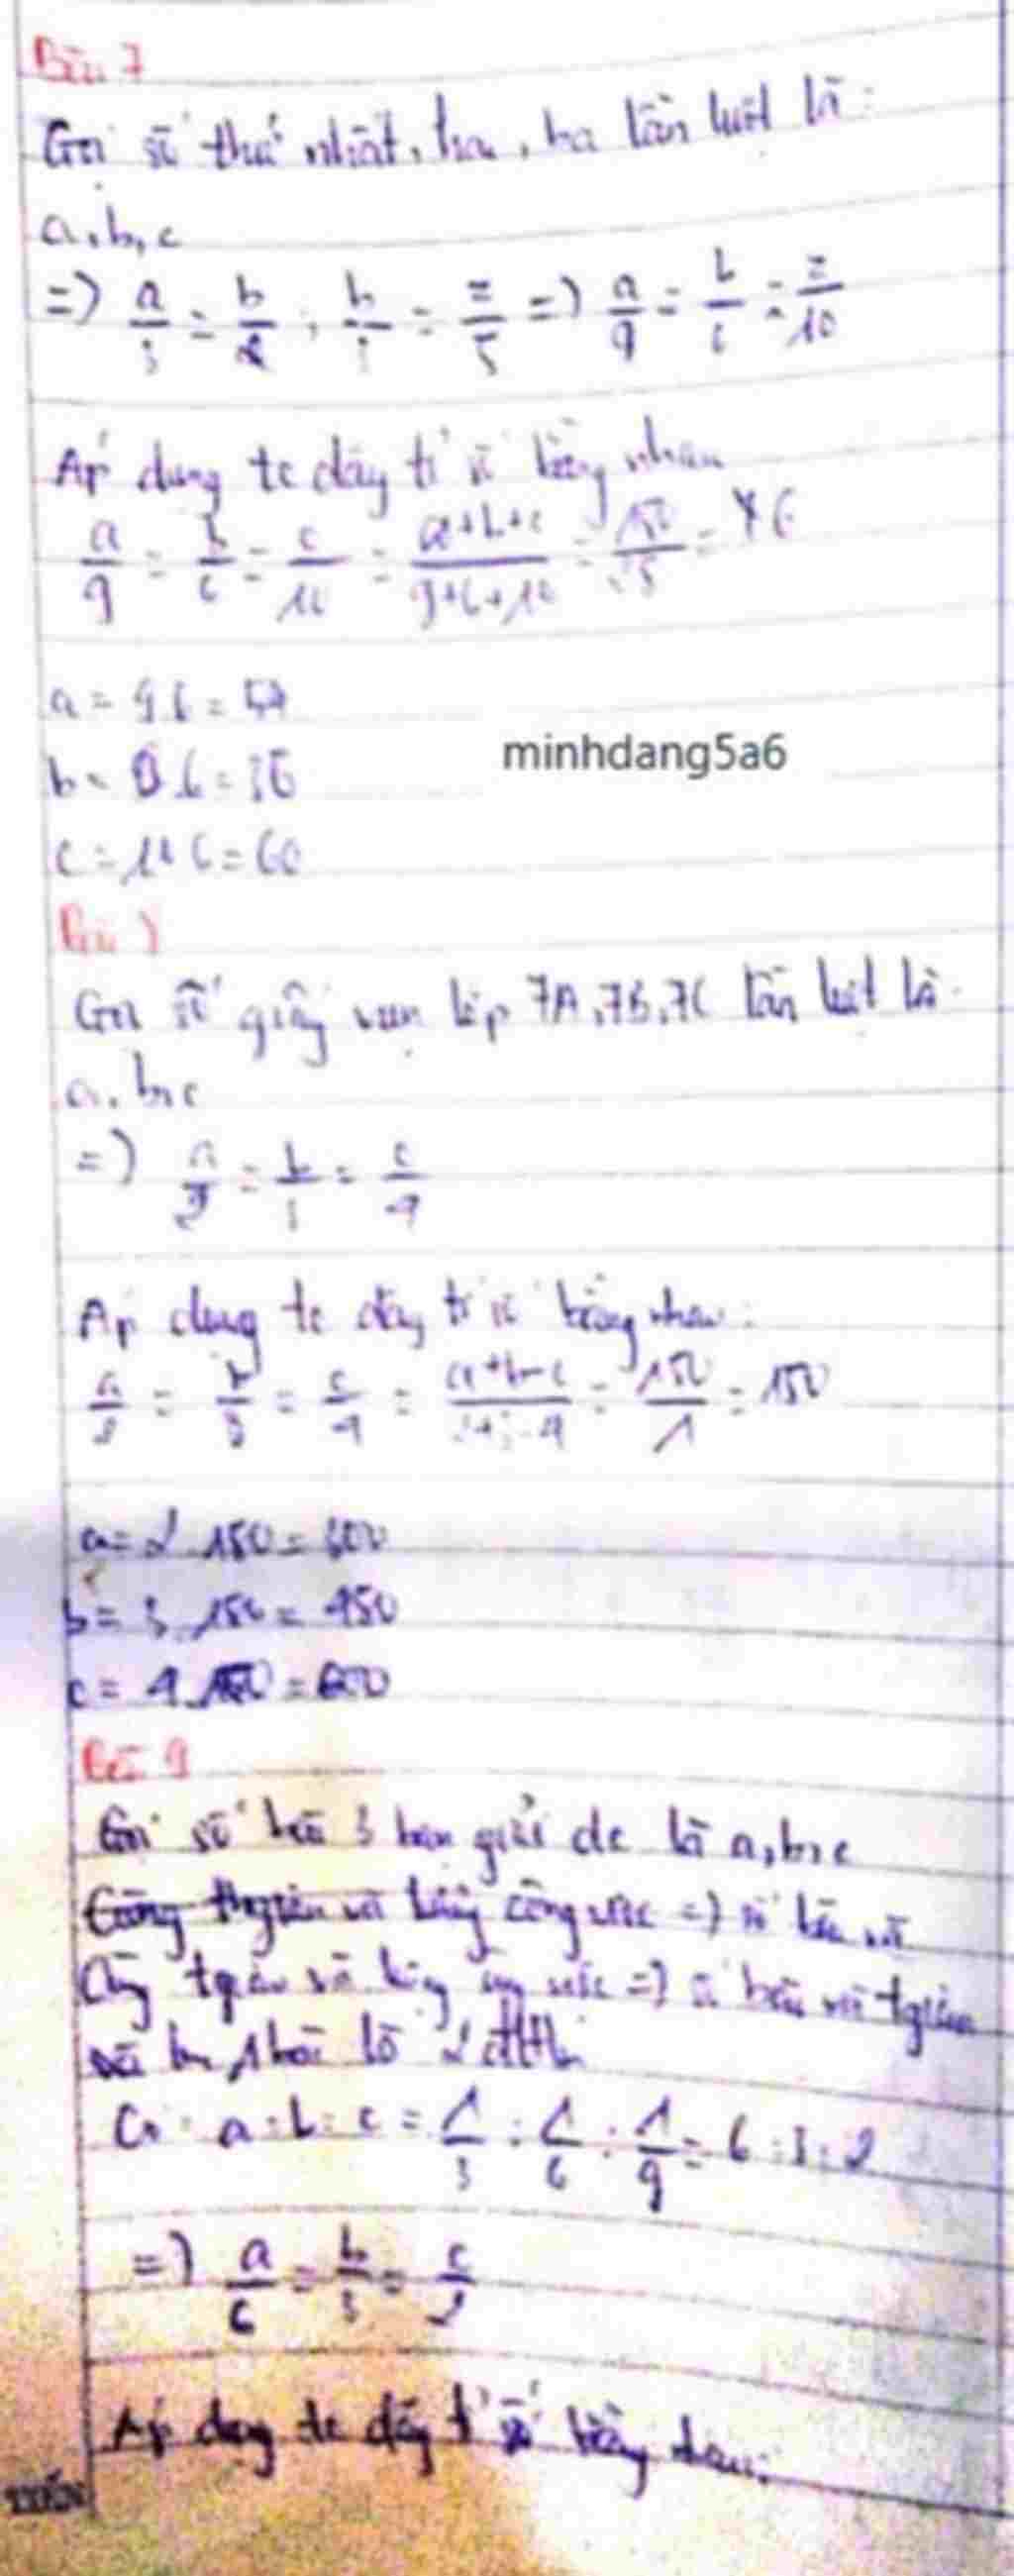 Bài 7
Gọi số thứ nhất, hai, ba lần lượt là:
a, b, c
=> a/3 = b/2 , b/3 = z/5 => a/9 = b/6 = z/10
Áp dụng tc dãy tỉ số bằng nhau
a/9 = b/6 = c/10 = a+b+c/9+6+10 = 150/25 = 6
a = 9.6 = 54
b = 6.6 = 36
minhdang5a6
c = 10.6 = 60
Bài
Gọi số giấy vụn lớp 7A, 7B, 7C lần lượt là
a, b, c
=> a/2 = b/3 = c/4
Áp dụng tc dãy tỉ số bằng nhau:
a/2 = b/3 = c/4 = a+b-c/2+3-4 = 150/1 = 150
a = 2.150 = 300
b = 3.150 = 450
c = 4.150 = 600
Bài 9
Gọi số bài 3 bạn giải dc là a, b, c
Cùng và bằng công việc => số bài và
Cùng tgian và => số bài và tgian
là 2 đltln
Có: a : b : c = 1/3 : 1/6 : 1/9 = 6 : 3 : 2
=> a/6 = b/3 = c/2
Áp dụng tc dãy tỉ số bằng nhau: